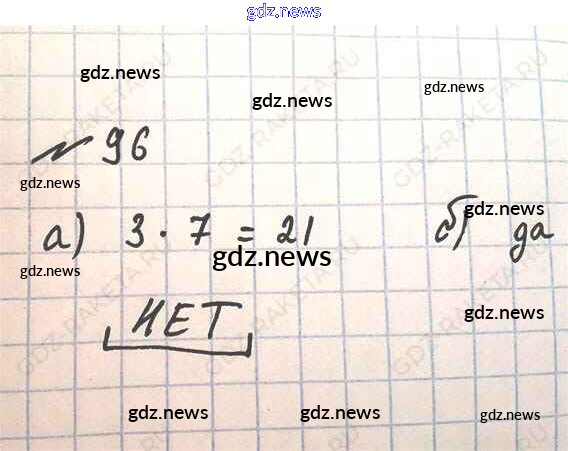 gdz.news
gdz.news
gdz.news
gdz.news
№ 96
gdz.news
а) 3 · 7 = 21 б) да
gdz.news
gdz.news
gdz.news
НЕТ
gdz.news
gdz.news
gdz.news
gdz.news
GDZ-RAKETA.RU
GDZ-RAKETA.RU
GDZ-RAKETA.RU
GDZ-RAKETA.RU